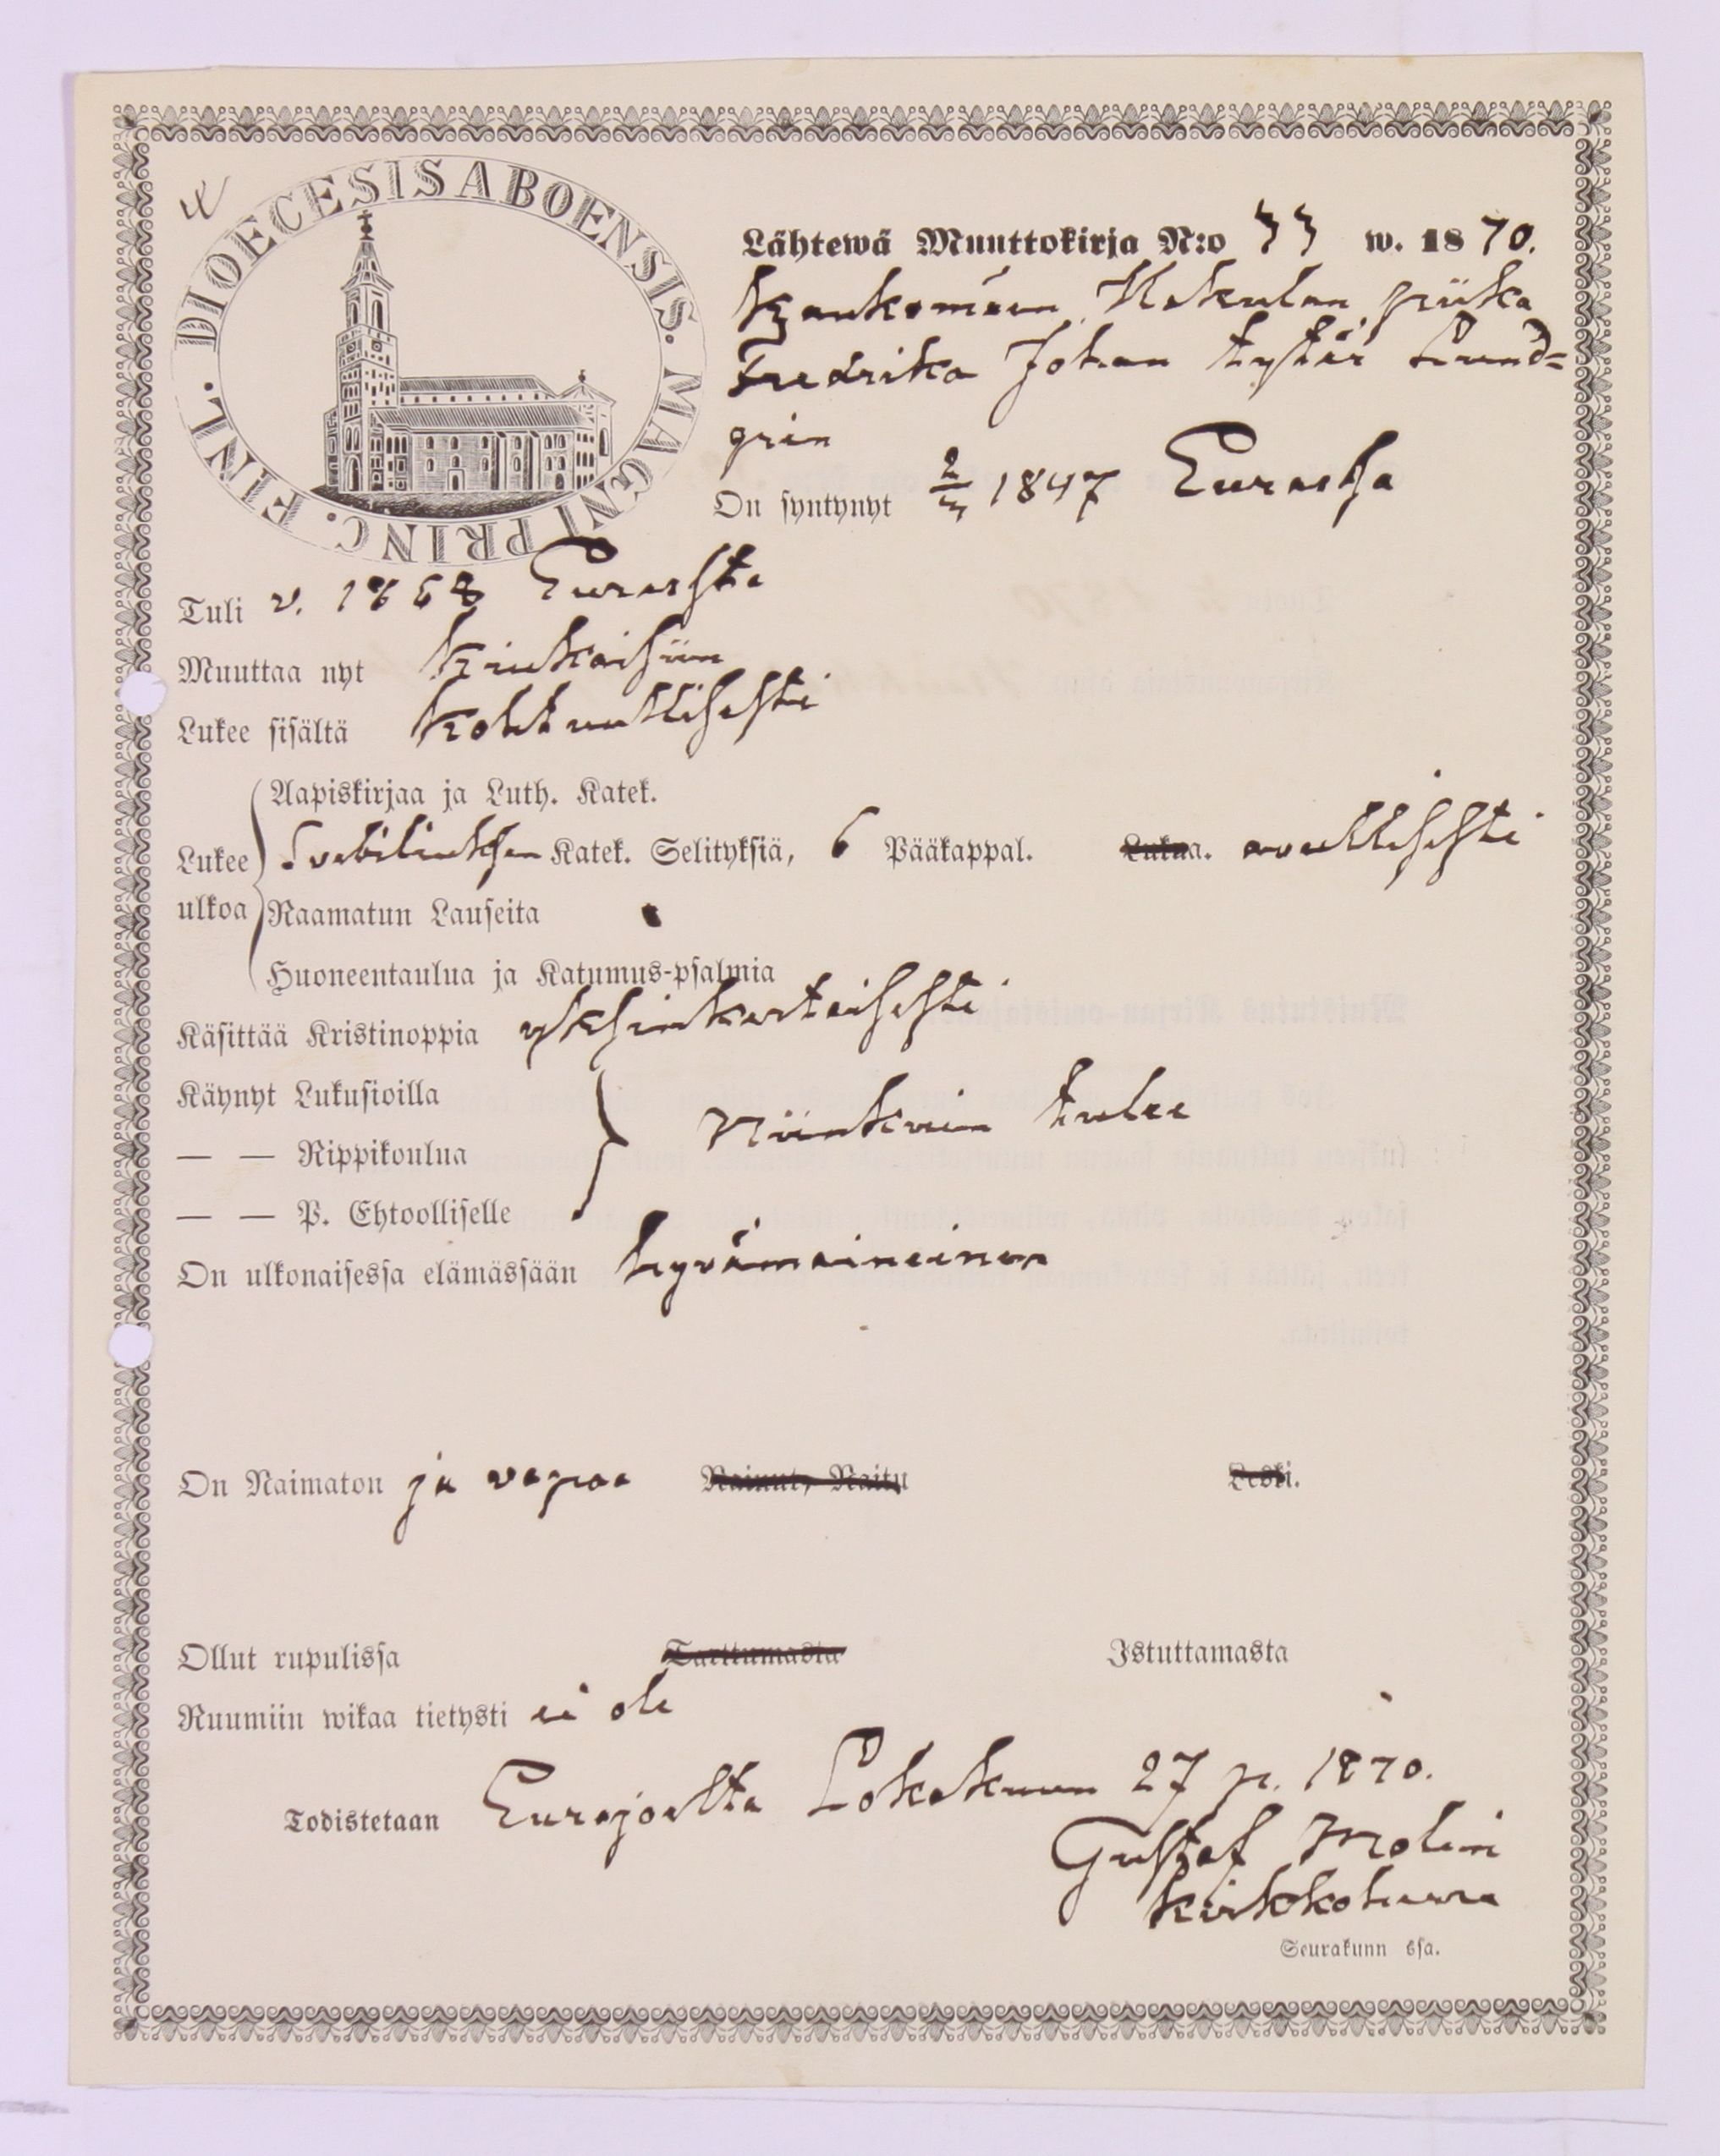 DIOECESIS ABOENSIS. MAGNI PRINC. FINL.
Lähtewä Muuttokirja N:o 33 w. 1870.
Kaukomäen Hakulan piika
Fredrika Johan tytär Lund=
grén
On syntynyt 2/3 1847 Eurassa
Tuli v. 1868 Eurassta
Muuttaa nyt Kiukaisiin
Lukee sisältä Kohtuullisesti
Aapiskirjaa ja Luth. Katek.
Lukee Svebiliuksen Katek. Selityksiä, 6 Pääkappal. Lukua. avullisesti
ulkoa Raamatun Lauseita
Huoneentaulua ja Katumus-psalmia
Käsittää Kristinoppia yksinkertaisesti
Käynyt Lukusioilla
— — Rippikoulua Niinkuin tulee
— — P. Ehtoolliselle
On ulkonaisessa elämässään hyvämaineinen
On Naimaton ja vapaa Nainut, Naitu Leski.
Ollut rupulissa Tarttumasta Istuttamasta
Ruumiin wikaa tietysti ei ole
Todistetaan Eurajoelta Lokakuun 27 p. 1870.
Gustaf Molin
kirkkoherra
Seurakunn ssa.